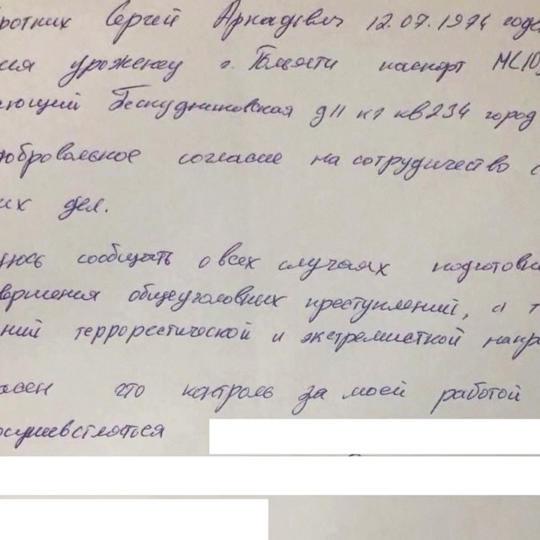 ротких Сергей Аркадьевич 12.07.1974 года
ния уроженец г. Тольятти паспорт МС10
ающий Бескудниковская д11 к1 кв234 город
добровольное согласие на сотрудничество с
их дел.
уюсь сообщать о всех случаях подготовки
вершения общеуголовных преступлений, а т
ний террорестической и экстремисткой напр
ласен что контроль за моей работой
осуществляться